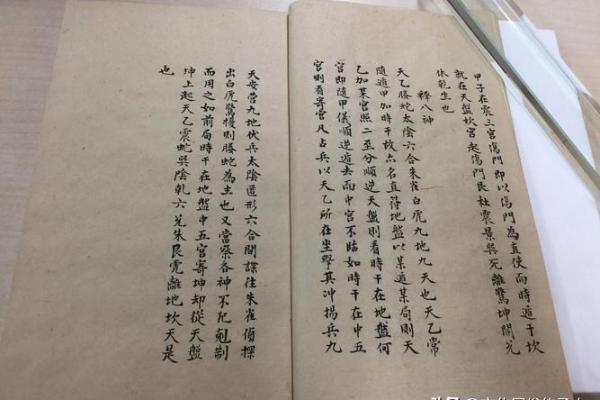 甲子在震三宮傷門即以傷門為直使而時遁于坎
就在天盤坎宮起傷門艮杜震景巽死離驚坤開兌
休乾生也
釋八神
天乙螣蛇太陰六合朱雀白虎九地九天也天乙常
隨遁甲加時干故亦名直符地盤以某遁某局則天
乙加某宮照二至分順逆天盤則看時干在地盤何
宮即隨甲儀順逆遁去而中宮不貼如時干在中五
宮則看寄宮凡占兵以天乙所在坐擊其冲揚兵九
天安營九地伏兵太陰遁形六合間諜往朱雀偵探
出白虎驚擾則螣蛇為主也又當察各神不犯剋制
而用之如前局時干在地盤中五宮寄坤却從天盤
坤上起天乙震蛇巽陰乾六兌朱艮虎離地坎天是
也